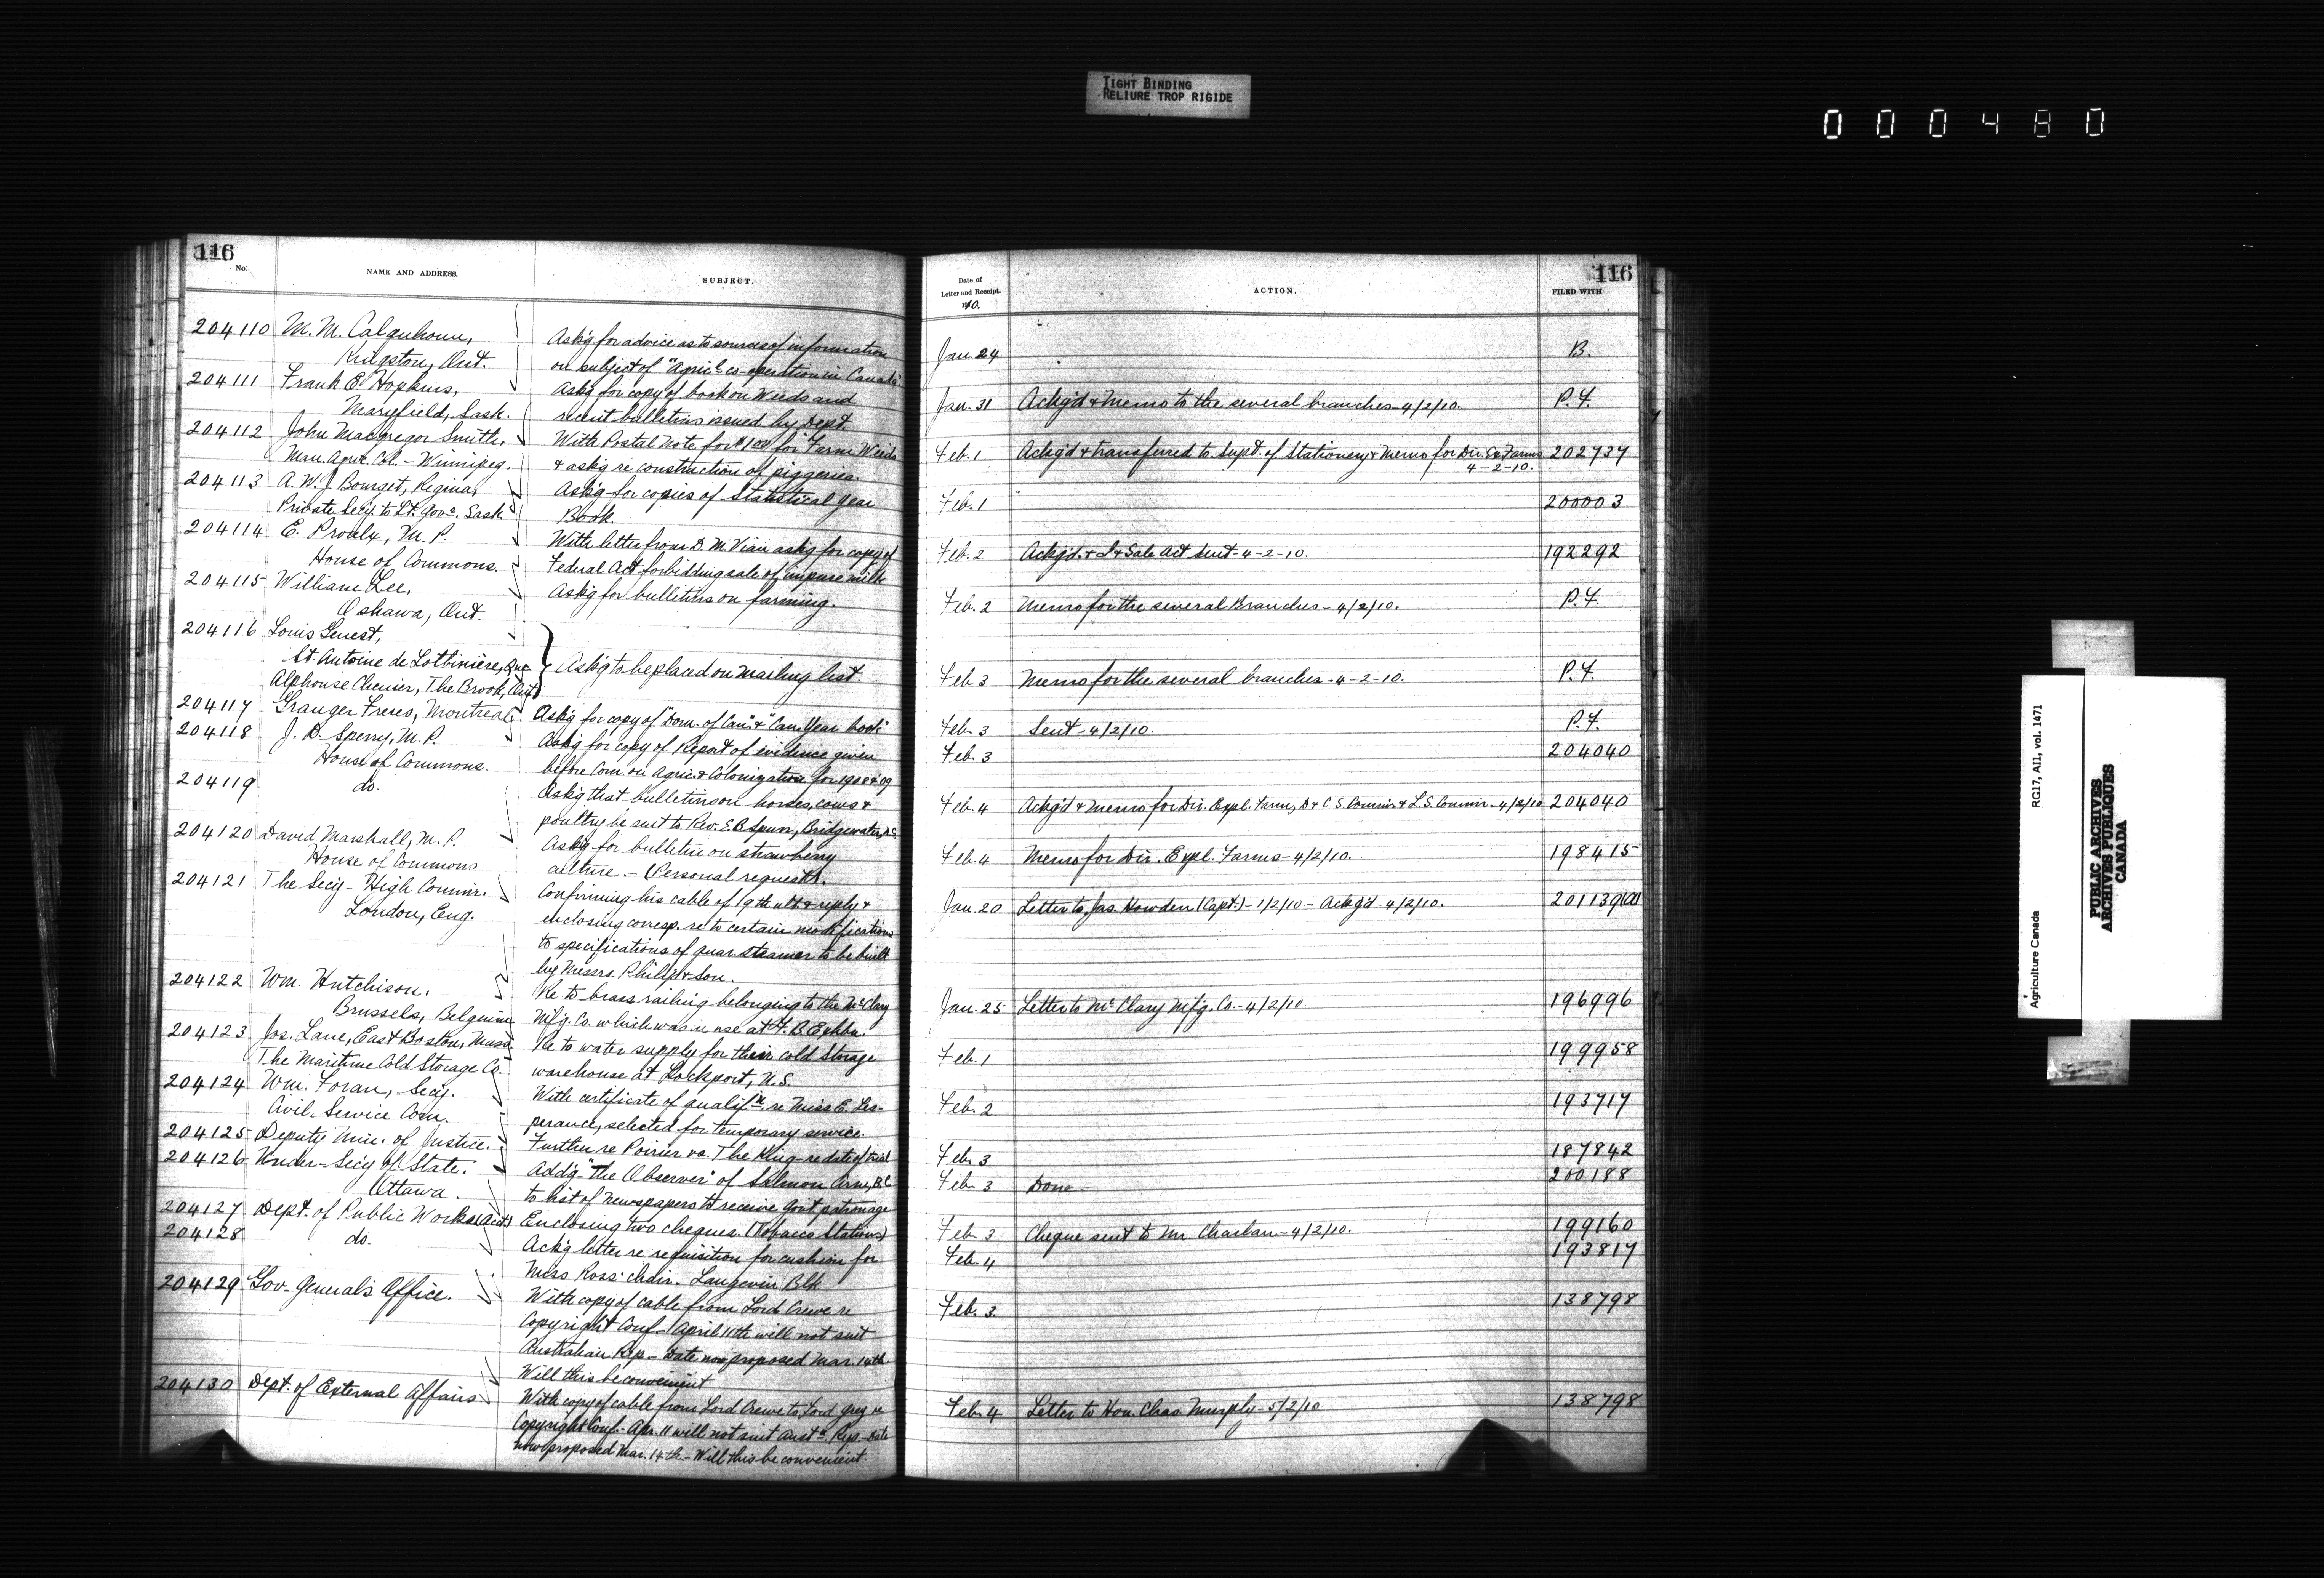 TIGHT BINDING
RELIURE TROP RIGIDE
000480
116
No.
NAME AND ADDRESS.
SUBJECT.
204110 M. M. Calquhoun,
Kingston, Ont.
Ask'g for advice as to sources of information
on subject of "Agric'l co-operation in Canada"
204111 Frank E. Hopkins,
Maryfield, Sask.
Ask'g for copy of book on Weeds and
recent bulletins issued by Dept.
204112 John Macgregor Smith,
Man. Agric. Col. - Winnipeg.
With Postal Note for $1.00 for "Farm Weeds
& ask'g re construction of piggeries.
204113 A. W. J. Bourget, Regina,
Private Sec'y to Lt. Gov'r. Sask.
Ask'g for copies of Statistical Year
Book.
204114 E. Proulx, M. P.
House of Commons.
With letter from D. M. Vian ask'g for copy of
Federal Act forbidding sale of impure milk
204115 William Lee,
Oshawa, Ont.
Ask'g for bulletins on farming.
204116 Louis Genest,
St. Antoine de Lotbinière, Que
Alphonse Chenier, The Brook, Ont
Ask'g to be placed on mailing list.
204117 Granger Freres, Montreal,
Ask'g for copy of "Dom. of Can". & "Can. Year book"
204118 J. D. Sperry, M. P.
House of Commons.
Ask'g for copy of Report of evidence given
before Com. on Agric. & Colonization for 1908 & 09
204119 do.
Ask'g that bulletins on horses, cows &
poultry be sent to Rev. E. B. Spurr, Bridgewater, N.S.
204120 David Marshall, M. P.
House of Commons
Ask'g for bulletin on strawberry
culture. - (Personal request).
204121 The Sec'y - High Commr.
London, Eng.
Confirming his cable of 19th ult. & reply &
enclosing corresp. re to certain modifications
to specifications of quar. steamer to be built
by Messrs. Philip & Son.
204122 Wm. Hutchison.
Brussels, Belgium
Re to brass railing belonging to the McClary
Mf'g. Co. which was in use at F. B. Exhbn.
204123 Jos. Lane, East Boston, Mass.
The Maritime Cold Storage Co.
Re to water supply for their cold storage
warehouse at Lockport, N.S.
204124 Wm. Foran, Secy.
Civil Service Com.
With certificate of qualif'n. re Miss E. Les-
perance, selected for temporary service.
204125 Deputy Min. of Justice.
Further re Poirier vs. The King - re date of trial
204126 Under-Sec'y of State.
Ottawa.
Add'g "the Observer" of Salmon Arm, B.C.
to list of newspapers to receive Govt. patronage
204127 Dept. of Public Works (Acct)
Enclosing two cheques. (Tobacco Stations)
204128 do.
Ack'g letter re requisition for cushion for
Miss Ross' chair. Langevin Blk
204129 Gov-General's Office.
With copy of cable from Lord Crewe re
Copyright Conf - April 11th will not suit
Australian Rep - Date now proposed Mar. 14th.
Will this be convenient
204130 Dept. of External Affairs
With copy of cable from Lord Crewe to Lord Grey re
Copyright Conf. Apr. 11 will not suit Aust'n. Rep. - Date
now proposed Mar. 14th - Will this be convenient.
116
Date of
Letter and Receipt.
1910.
ACTION.
FILED WITH
Jan. 24 B.
Jan. 31 Ackg'd & Memo to the several branches - 4/2/10. P. F.
Feb. 1 Ackg'd & transferred to Supt. of Stationery & Memo for Dir. Ex. Farms 202737
4-2-10.
Feb. 1 200003
Feb. 2 Ackg'd. & I & Sale Act sent - 4-2-10. 192292
Feb. 2 Memo for the several Branches - 4/2/10. P. F.
Feb 3 Memo for the several branches - 4-2-10. P. F.
Feb. 3 Sent - 4/2/10. P. F.
Feb. 3 204040
Feb. 4 Ackg'd & Memo for Dir. Expl. Farm, D & C. S. Commr. & L. S. Commr - 4/2/10 204040
Feb. 4 Memo for Dir. Expl. Farms - 4/2/10. 198415
Jan. 20 Letter to Jas. Howden (Capt.) - 1/2/10 - Ackg'd - 4/2/10. 201139(a)
Jan. 25 Letter to McClary Mf'g. Co. - 4/2/10 196996
Feb. 1 199958
Feb. 2 193717
Feb. 3 187842
Feb. 3 Done 200188
Feb. 3 Cheque sent to Mr. Charlan - 4/2/10. 199160
Feb. 4 193817
Feb. 3. 138798
Feb. 4 Letter to Hon. Chas. Murphy - 5/2/10 138798
Agriculture Canada
RG17, AI1, vol. 1471
PUBLIC ARCHIVES
ARCHIVES PUBLIQUES
CANADA